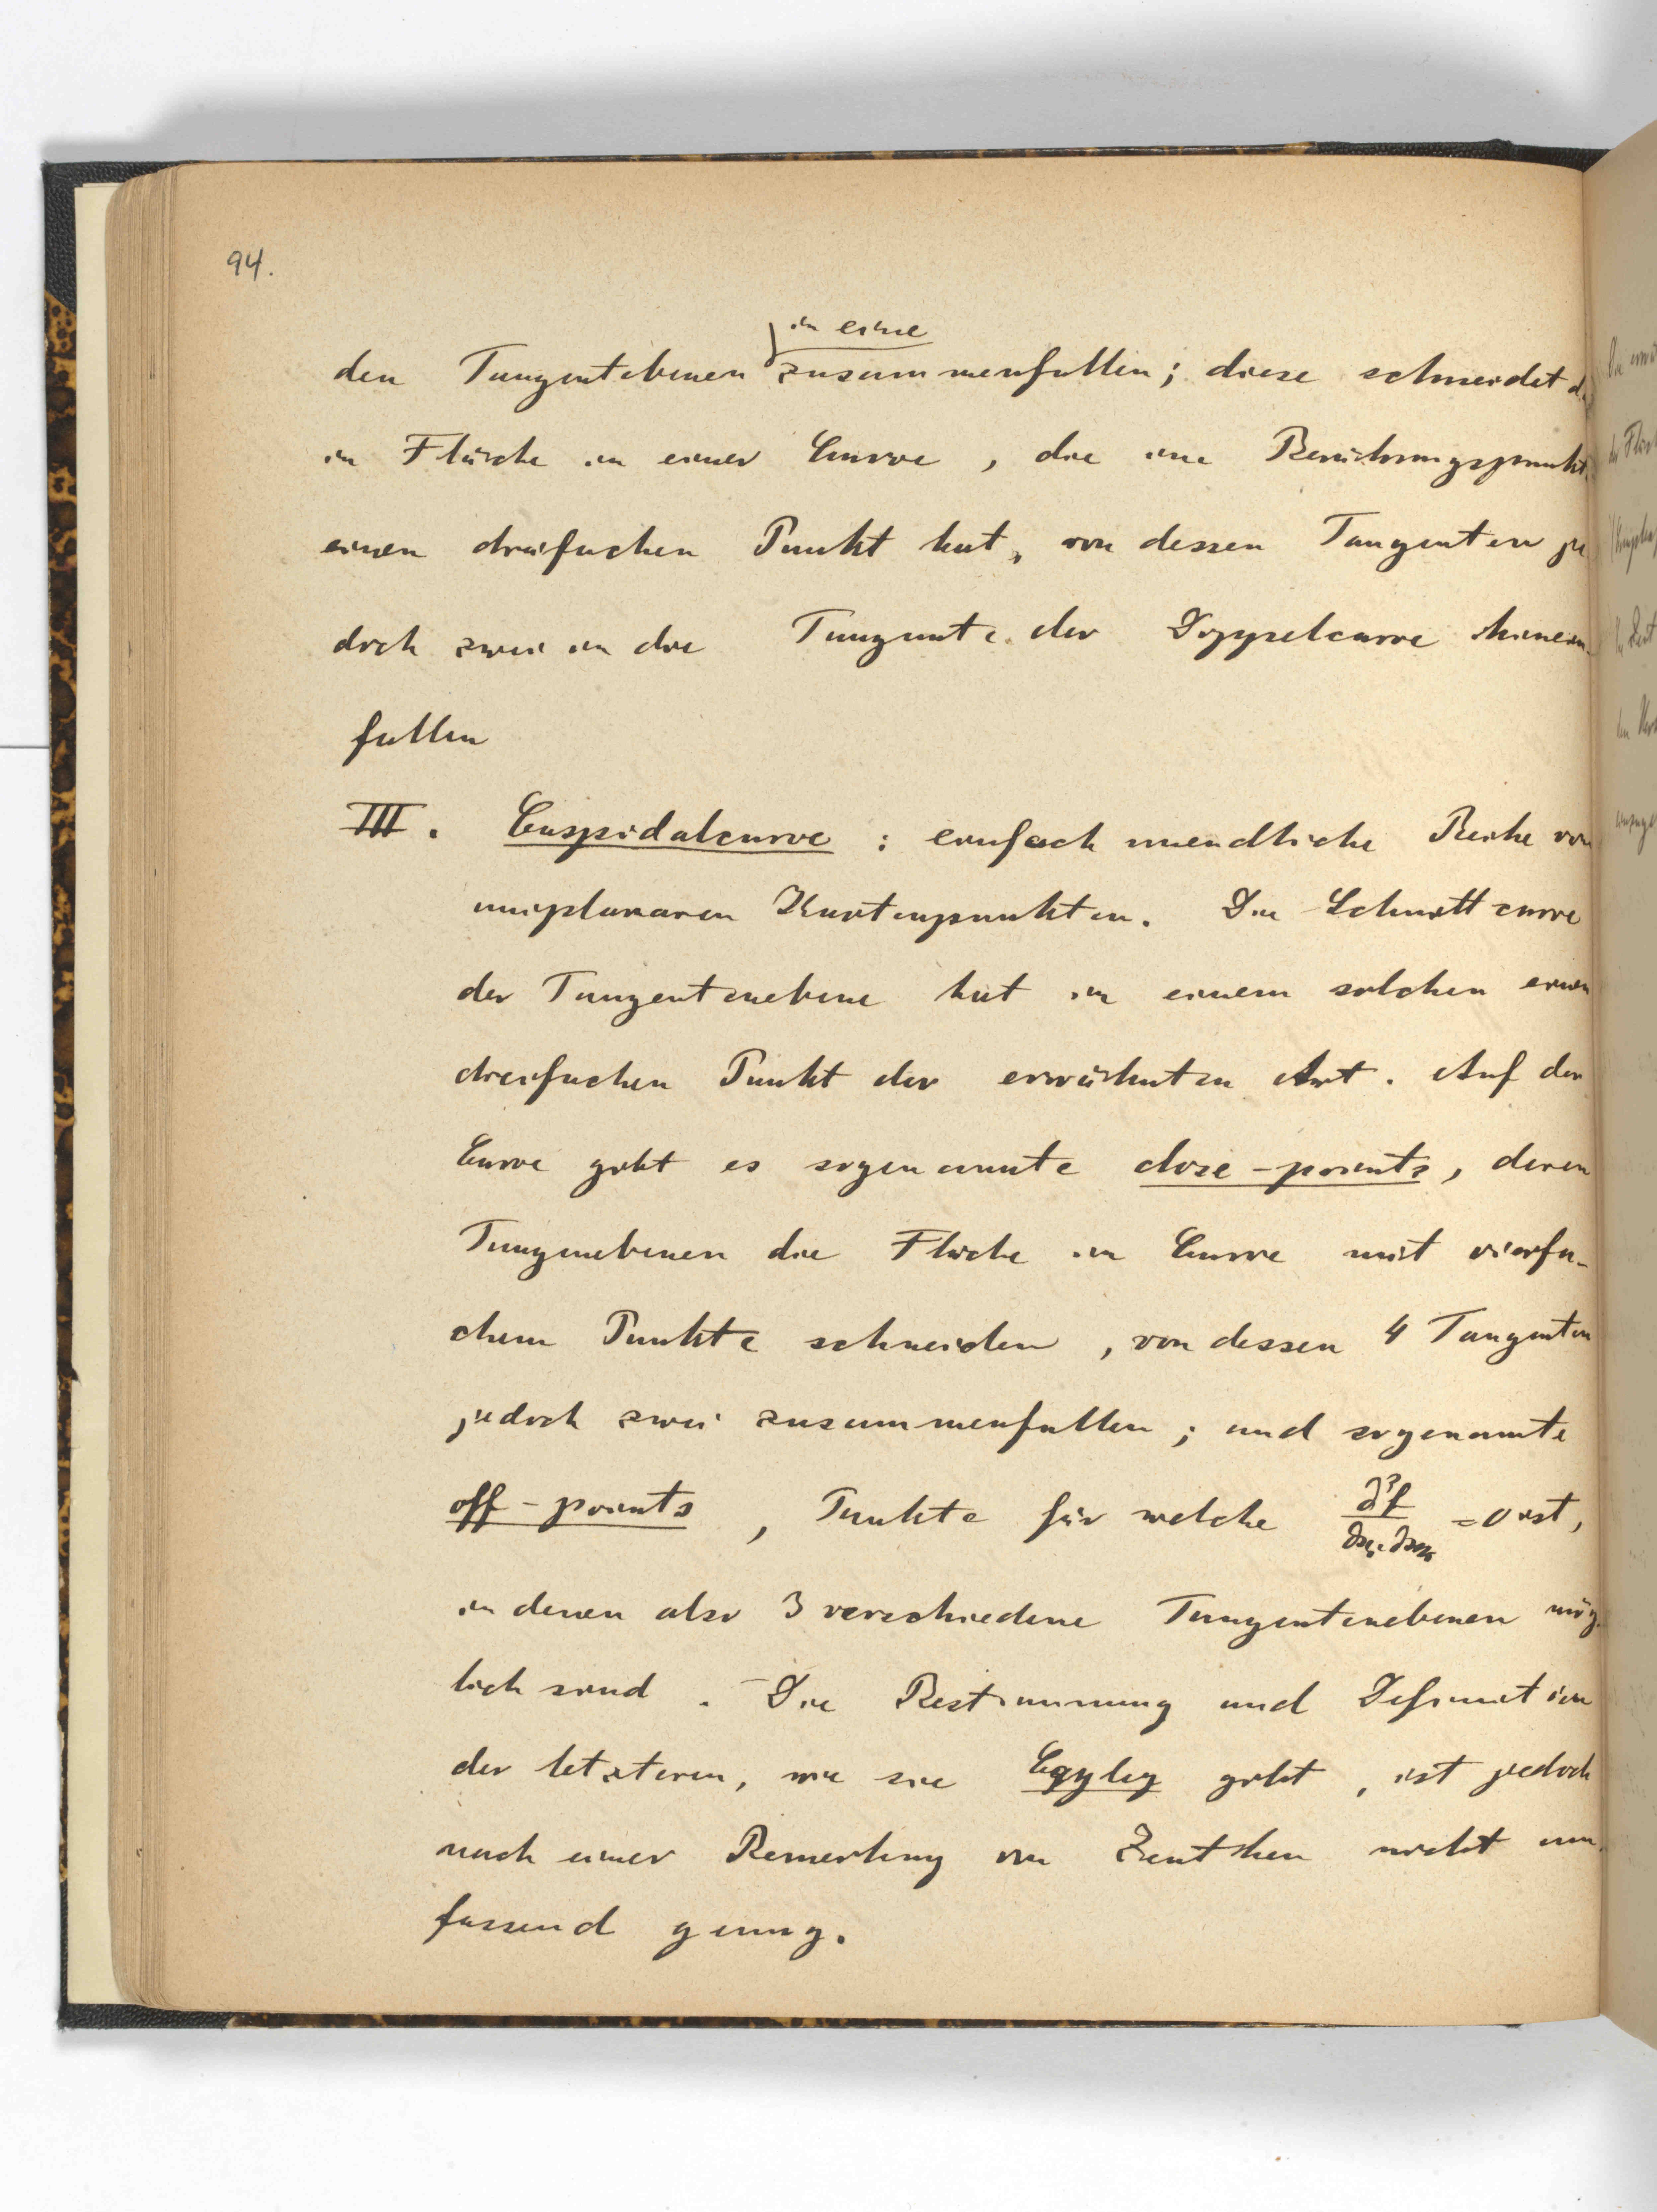 94.
in eine
den Tangentebenen zusammenfallen; diese schneidet
in Fläche in einer Curve, die im Berührungspunkt
einen dreifachen Punkt hat, von dessen Tangenten je
doch zwei in die Tangente der Doppelcurve hinein-
fallen
III. Cuspidalcurve: einfach unendliche Reihe von
uniplanaren Knotenpunkten. Die Schnittcurve
der Tangentenebene hat in einem solchen einen
dreifachen Punkt der erwähnten Art. Auf der
Curve gibt es sogenannte close-points, deren
Tangenebenen die Fläche in Curve mit vierfa-
chem Punkte schneiden, von dessen 4 Tangenten
jedoch zwei zusammenfallen; und sogenannte
off-points, Punkte für welche ∂²f/∂xᵢ∂xₖ = 0 ist,
in denen also 3 verschiedene Tangentenebenen mög-
lich sind. Die Bestimmung und Definition
der letzteren, wie sie Cayley gibt, ist jedoch
nach einer Bemerkung von Zeuthen nicht um-
fassend genug.